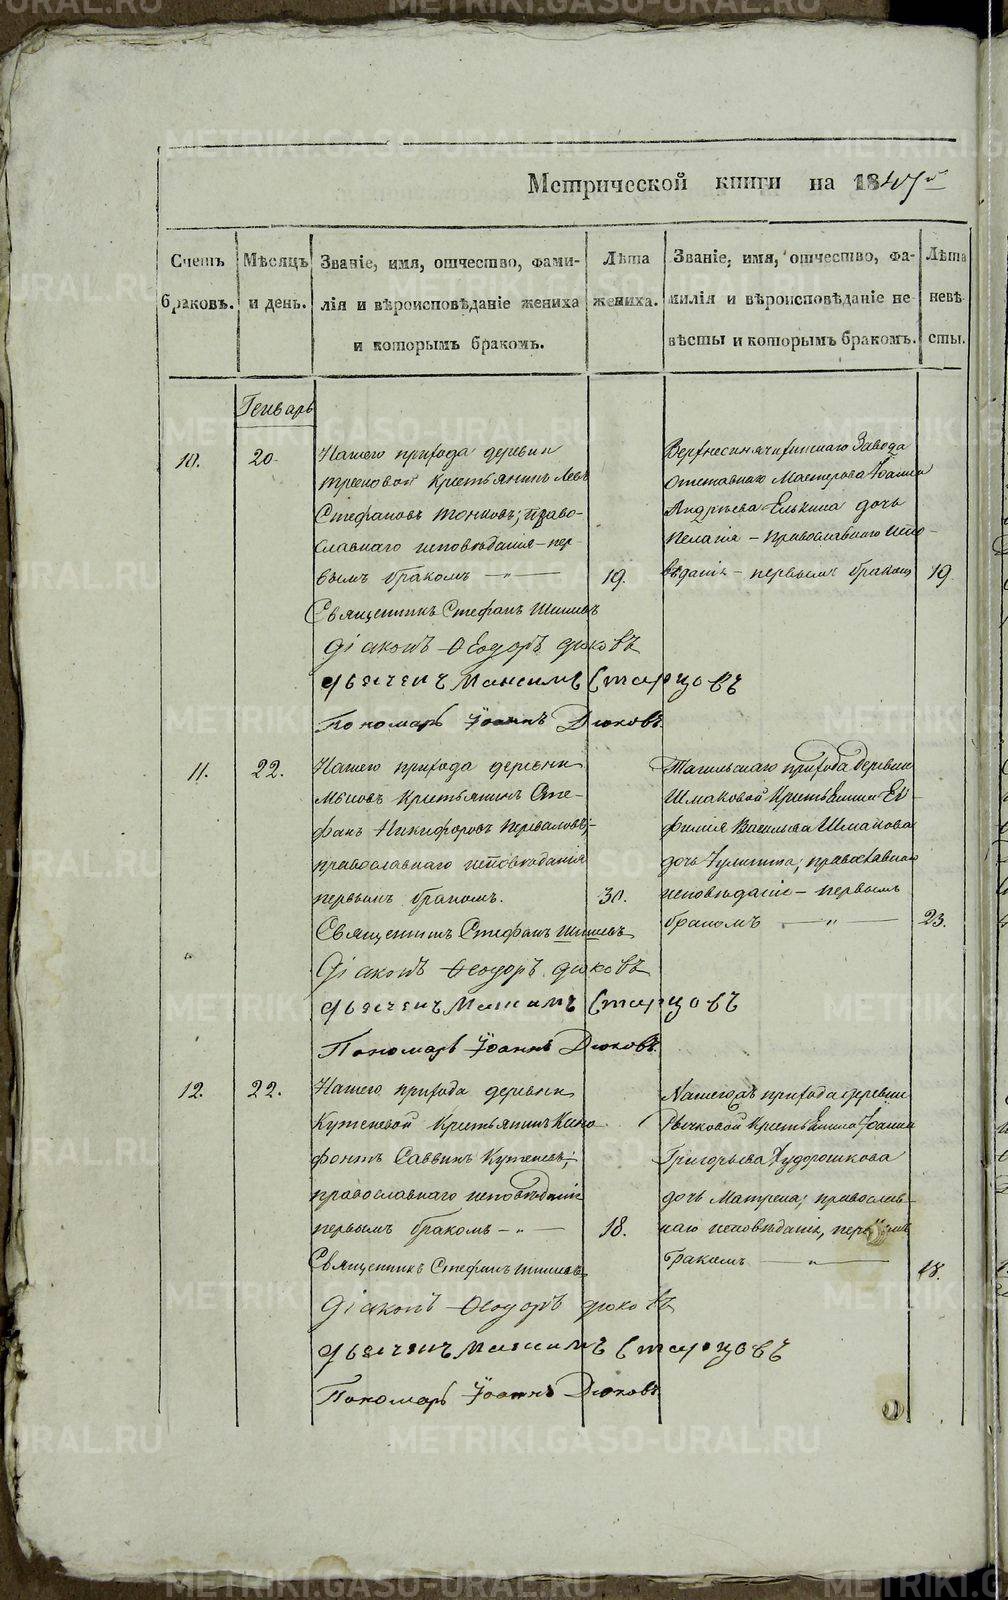 METRIKI.GASO-URAL.RU
Метрической книги на 1845й
Счетъ браковъ.
Мѣсяцъ и день.
Званіе, имя, отчество, фамилія и вѣроисповѣданіе жениха и которымъ бракомъ.
Лѣта жениха.
Званіе, имя, отчество, фамилія и вѣроисповѣданіе невѣсты и которымъ бракомъ.
Лѣта невѣсты.
Генварь
10.
20
Нашего прихода деревни
крестьянинъ Левъ
Стефановъ Тонковъ; право-
славнаго исповѣданія – пер-
вымъ бракомъ – „ –
19.
Завода
Отставнаго Мастерова Іоанна
Андрѣева Елькина дочь
Пелагія – православнаго испо-
вѣданія – первымъ бракомъ
19
Священникъ Стефанъ Шишевъ
Діаконъ Ѳеодоръ Дюковъ
Дьячекъ Максимъ Старцовъ
Пономарь Іоаннъ Дюковъ
11.
22.
Нашего прихода деревни
Мысовъ Крестьянинъ Сте-
фанъ Никифоровъ Переваловъ;
православнаго исповѣданія
первымъ бракомъ.
30.
Тагильскаго прихода деревни
Шмаковой Крестьянина Ев-
фимія Васильева Шмакова
дочь Іулитта; православнаго
исповѣданія – первымъ
бракомъ – „ –
23.
Священникъ Стефанъ Шишевъ
Діаконъ Ѳеодоръ Дюковъ
Дьячекъ Максимъ Старцовъ
Пономарь Іоаннъ Дюковъ
12.
22.
Нашего прихода деревни
Кутеневой Крестьянинъ Ксено-
фонтъ Саввинъ Кутеневъ;
православнаго исповѣданія
первымъ бракомъ – „ –
18.
Нашегожъ прихода деревни
Крестьянина Іоанна
Григорьева Худорошкова
дочь Матрена; православ-
наго исповѣданія, первымъ
бракомъ – „ –
18.
Священникъ Стефанъ Шишевъ
Діаконъ Ѳеодоръ Дюковъ
Дьячекъ Максимъ Старцовъ
Пономарь Іоаннъ Дюковъ